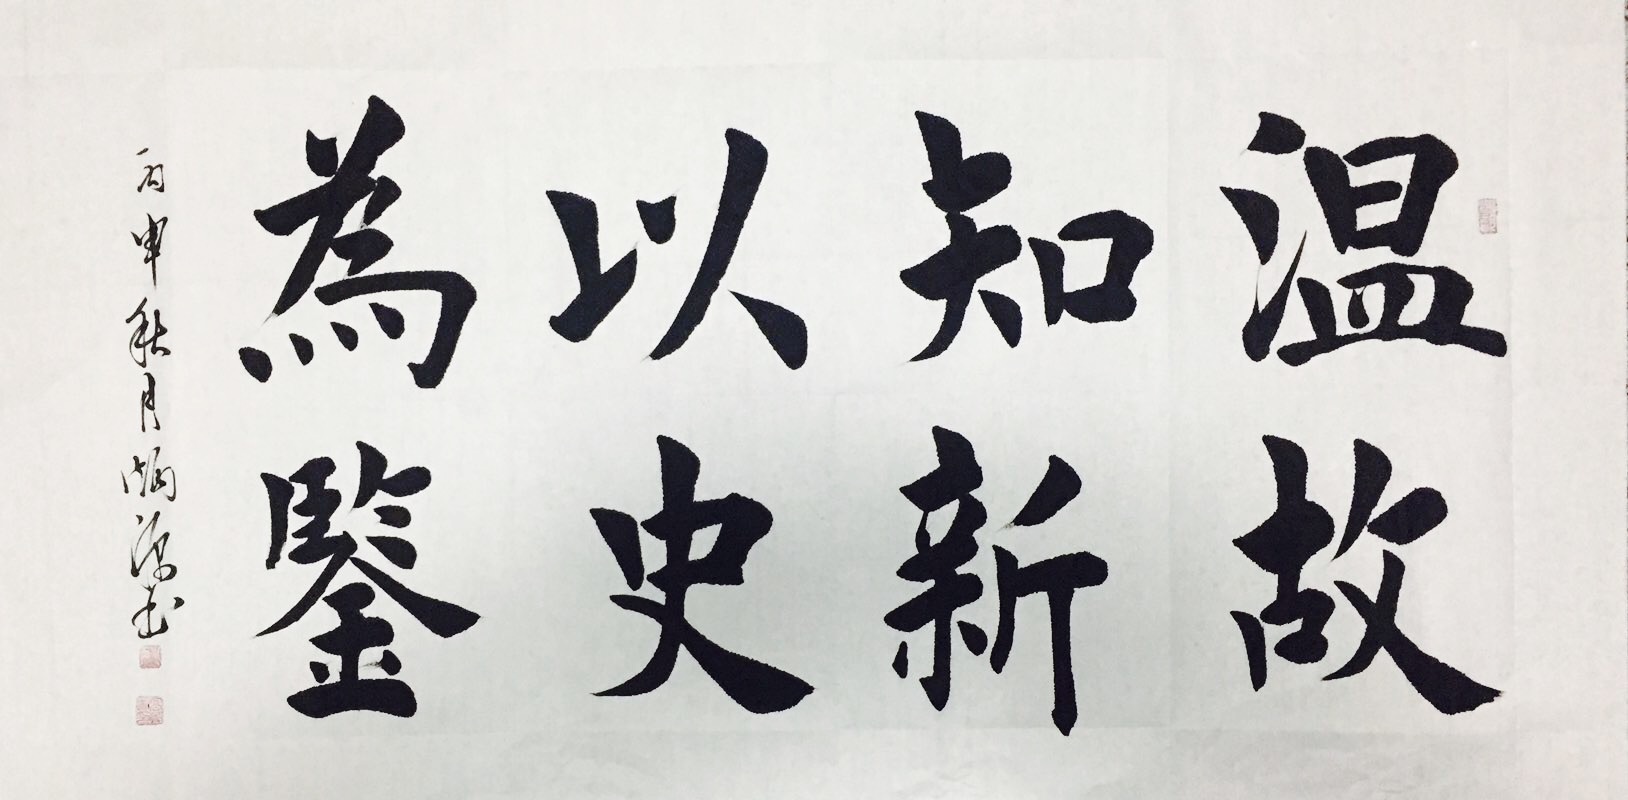 温故
知新
以史
為鑒
丙申秋月炳源书